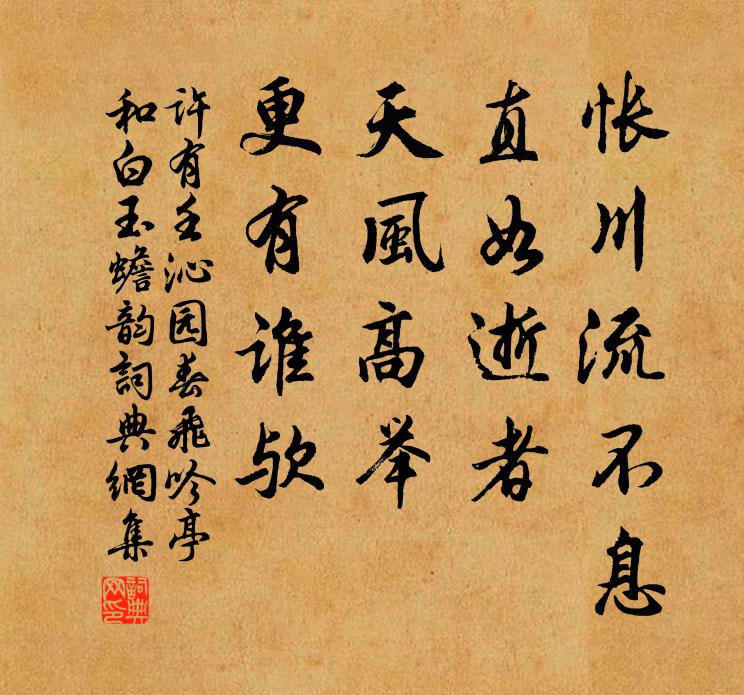 怅川流不息
直如逝者
天風高举
更有谁欤
许有壬沁园春飛吟亭
和白玉蟾韵詞典網集
詞典
网印